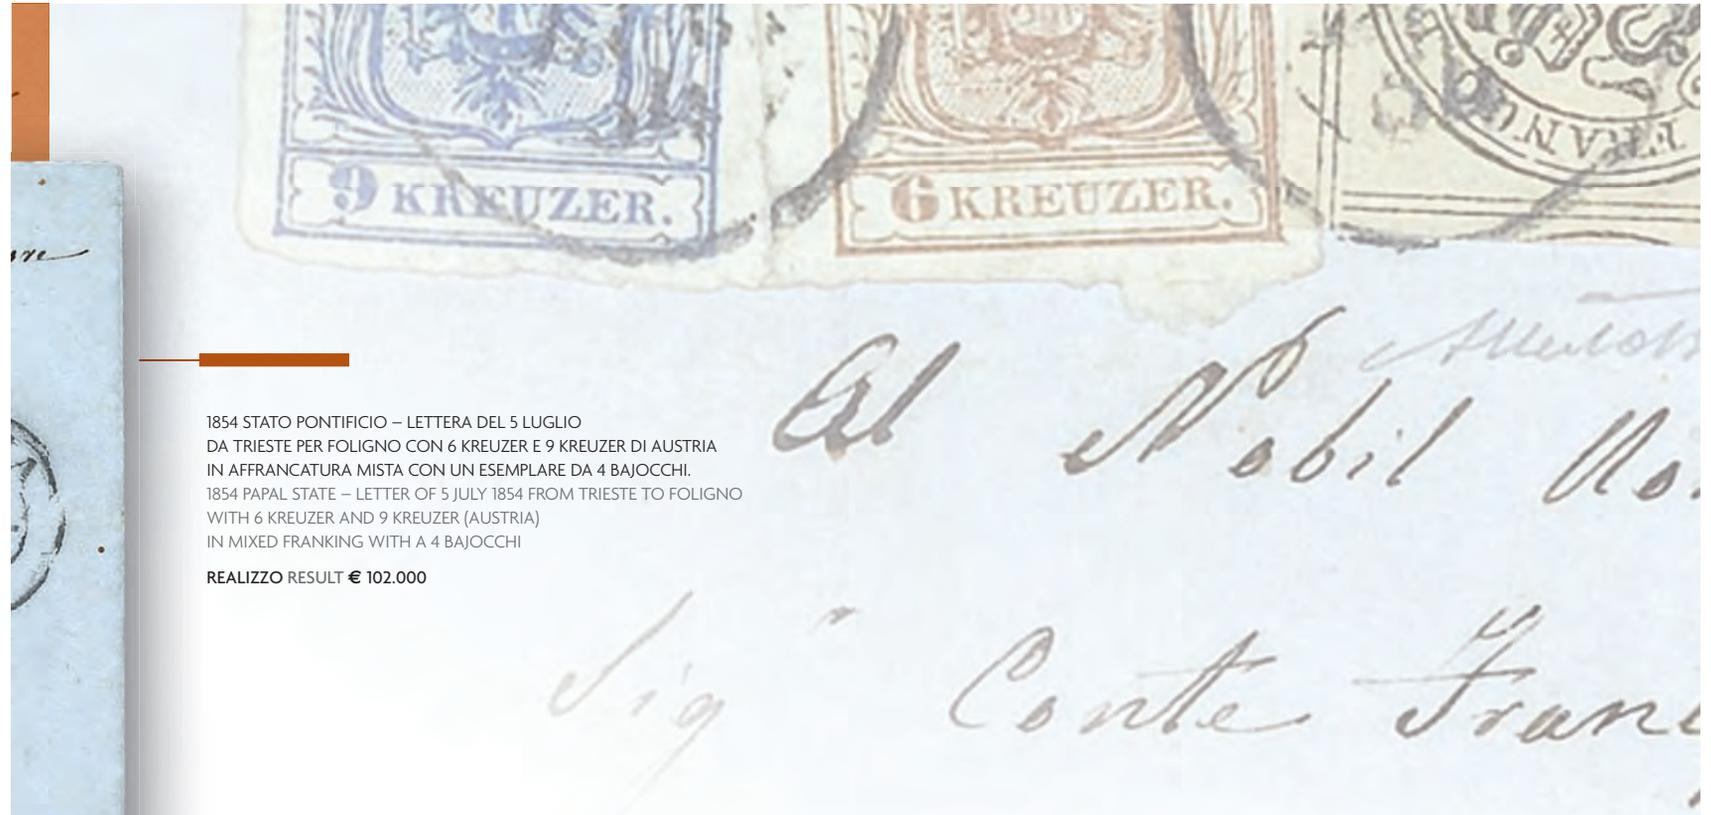 9 KREUZER.
6 KREUZER.
FRANC
Al Nobil
1854 STATO PONTIFICIO – LETTERA DEL 5 LUGLIO
DA TRIESTE PER FOLIGNO CON 6 KREUZER E 9 KREUZER DI AUSTRIA
IN AFFRANCATURA MISTA CON UN ESEMPLARE DA 4 BAJOCCHI.
1854 PAPAL STATE – LETTER OF 5 JULY 1854 FROM TRIESTE TO FOLIGNO
WITH 6 KREUZER AND 9 KREUZER (AUSTRIA)
IN MIXED FRANKING WITH A 4 BAJOCCHI
REALIZZO RESULT € 102.000
Sig Conte Franc